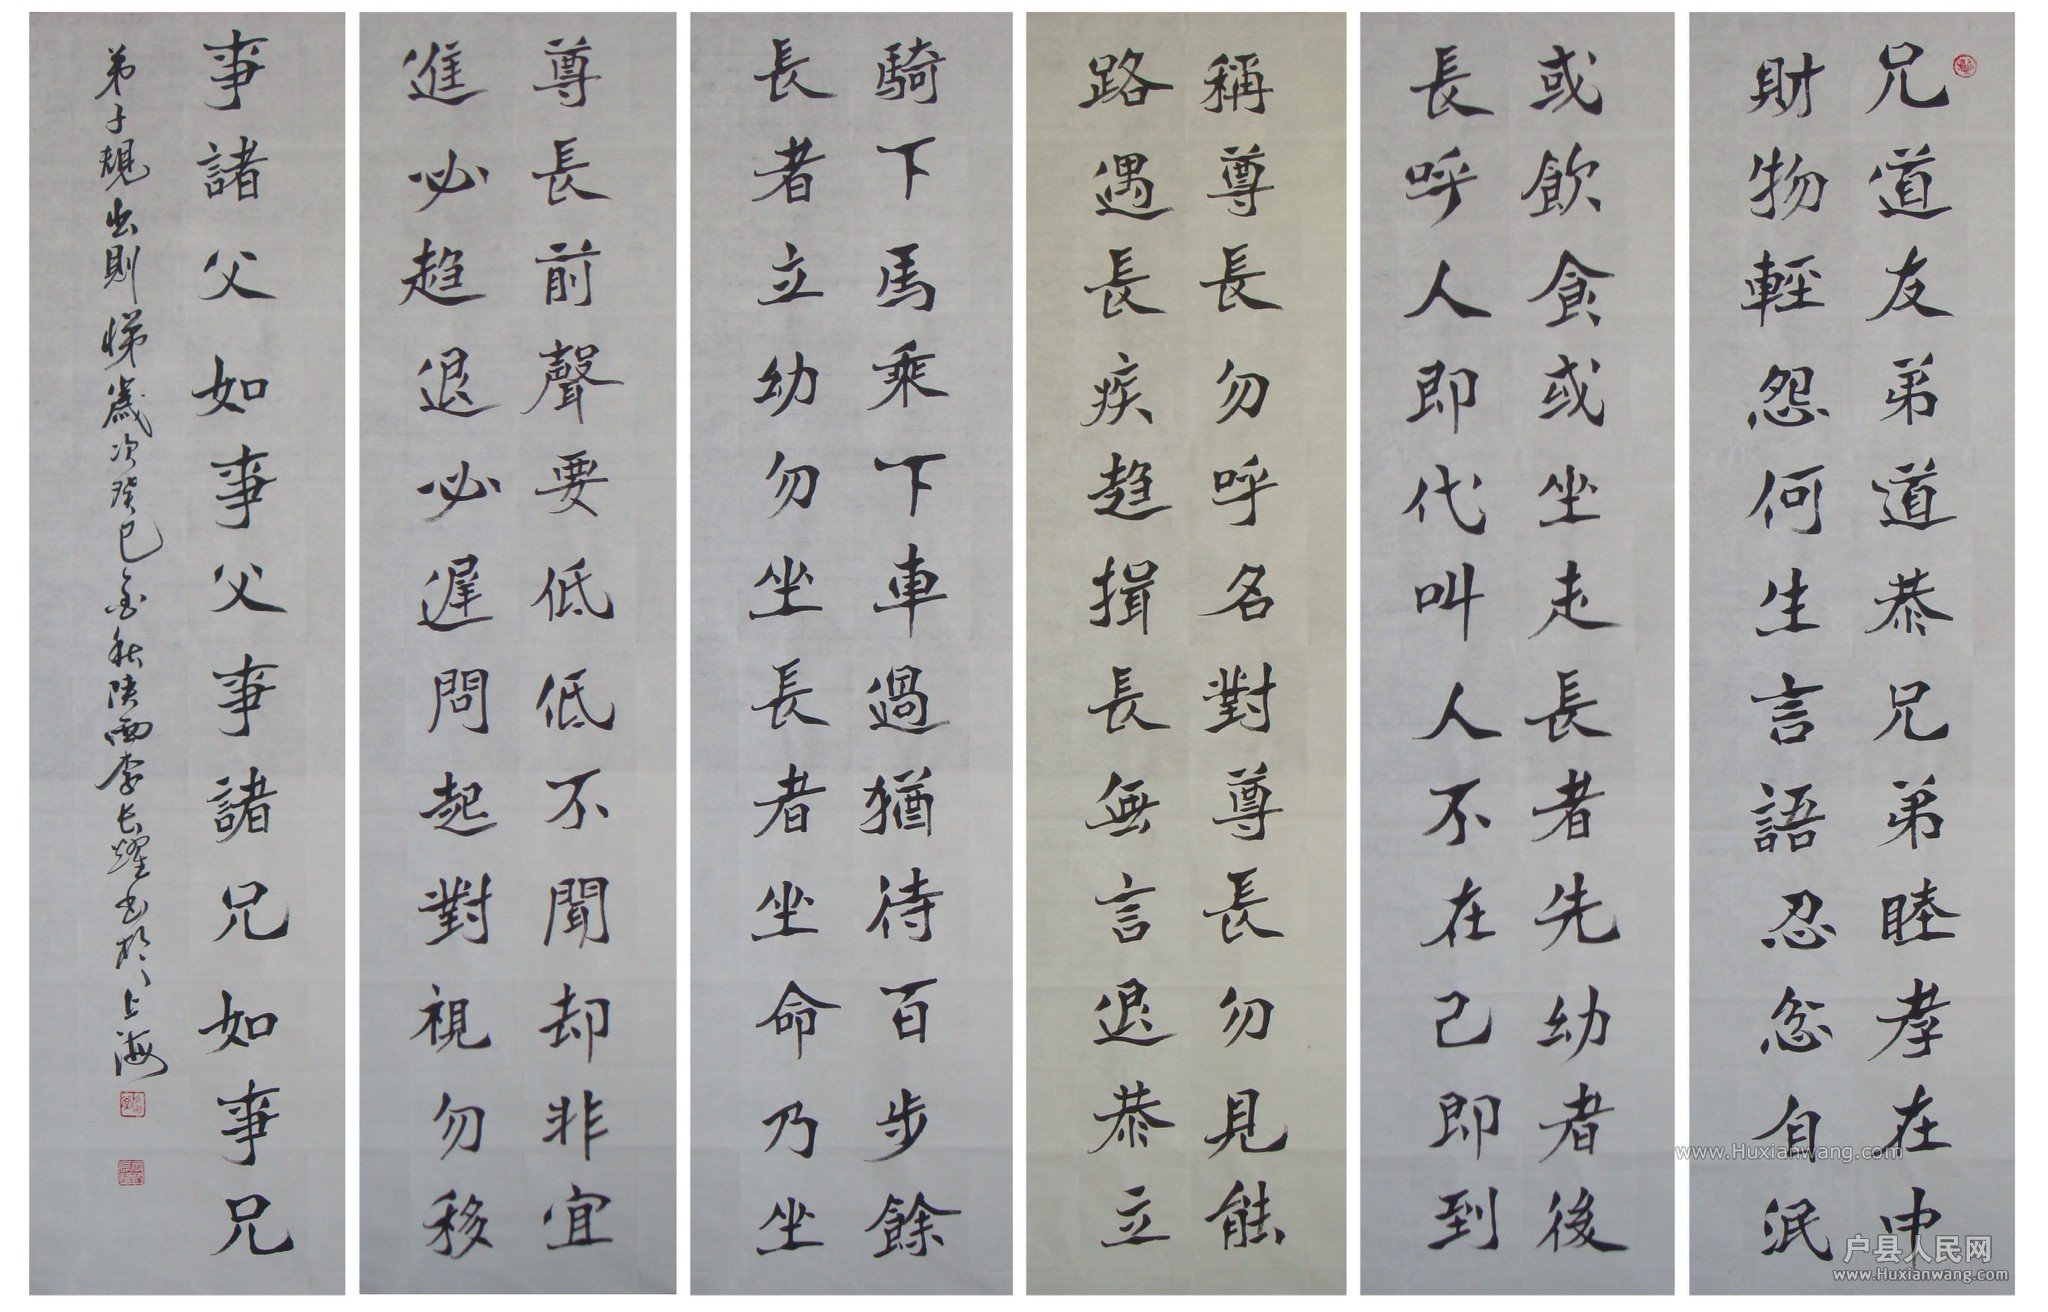 兄道友弟道恭兄弟睦孝在中
財物輕怨何生言語忍忿自泯
或飲食或坐走長者先幼者後
長呼人即代叫人不在己即到
稱尊長勿呼名對尊長勿見能
路遇長疾趨揖長無言退恭立
騎下馬乘下車過猶待百步餘
長者立幼勿坐長者坐命乃坐
尊長前聲要低低不聞却非宜
進必趨退必遲問起對視勿移
事諸父如事父事諸兄如事兄
弟子規出則悌歲次癸巳金秋陕西李长耀书於上海
www.Huxianwang.com
户县人民网
www.Huxianwang.com